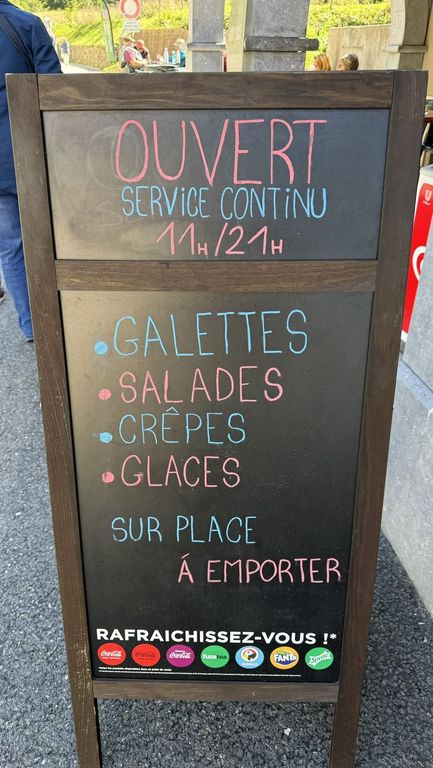 OUVERT
SERVICE CONTINU
11H/21H
• GALETTES
• SALADES
• CRÊPES
• GLACES
SUR PLACE
Á EMPORTER
RAFRAICHISSEZ-VOUS !*
Coca-Cola Coca-Cola Coca-Cola fuzetea TROPICO FANTA Sprite